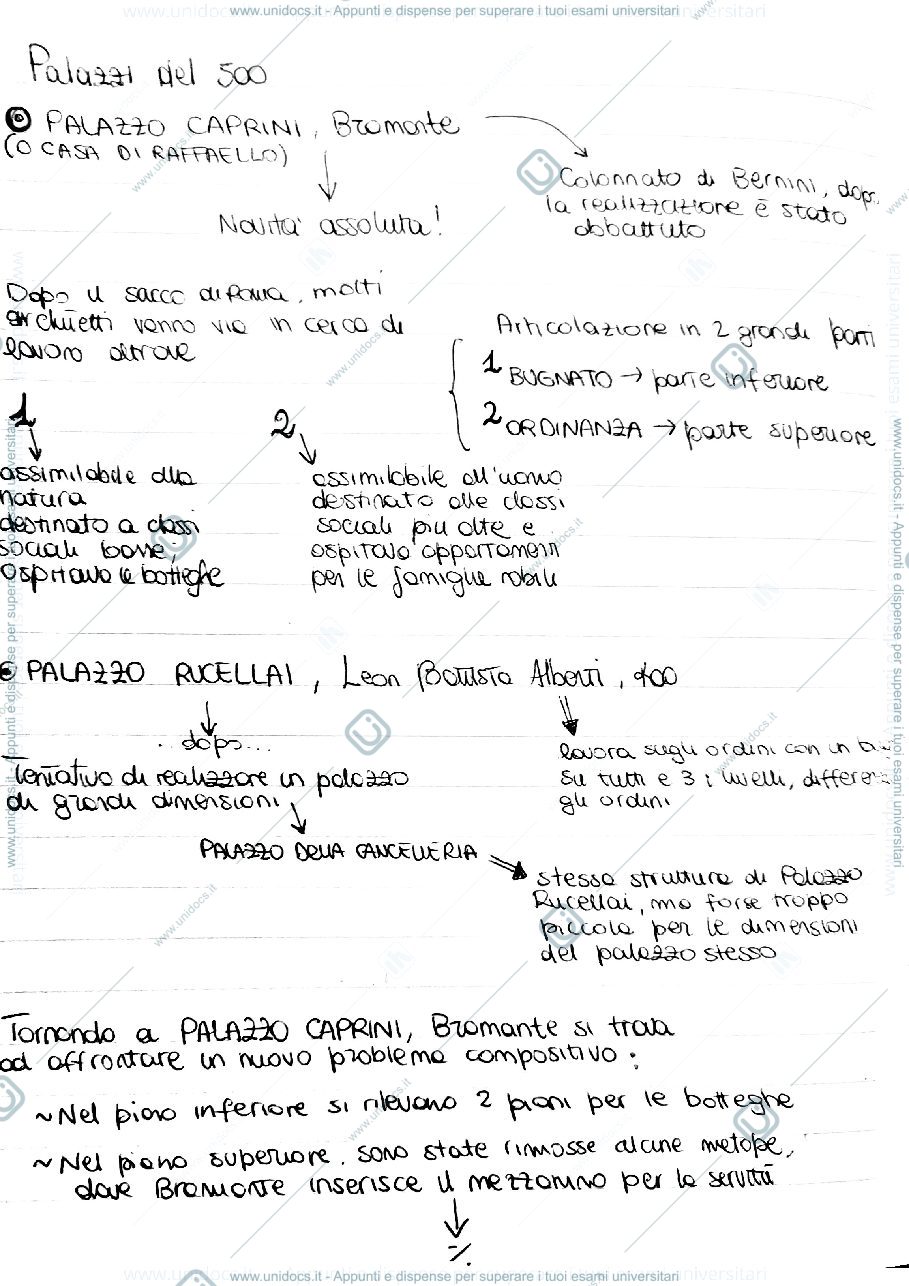 www.unidocs.it - Appunti e dispense per superare i tuoi esami universitari
Palazzi del 500
PALAZZO CAPRINI, Bramante
(O CASA DI RAFFAELLO)
Novità assoluta!
Colonnato di Bernini, dopo
la realizzazione è stato
abbattuto
Dopo il sacco di Roma, molti
architetti vanno via in cerca di
lavoro altrove
Articolazione in 2 grandi parti
1 BUGNATO → parte inferiore
2 ORDINANZA → parte superiore
1
assimilabile alla
natura
destinato a classi
sociali basse,
ospitava le botteghe
2
assimilabile all'uomo
destinato alle classi
sociali più alte e
ospitava appartamenti
per le famiglie nobili
PALAZZO RUCELLAI, Leon Battista Alberti, 400
dopo...
Tentativo di realizzare un palazzo
di grandi dimensioni
lavora sugli ordini con un
su tutti e 3 i livelli,
gli ordini
PALAZZO DELLA CANCELLERIA
stessa struttura di Palazzo
Rucellai, ma forse troppo
piccola per le dimensioni
del palazzo stesso
Tornando a PALAZZO CAPRINI, Bramante si trova
ad affrontare un nuovo problema compositivo:
~ Nel piano inferiore si rilevano 2 piani per le botteghe
~ Nel piano superiore, sono state rimosse alcune metope,
dove Bramante inserisce il mezzanino per la servitù
./.
www.unidocs.it - Appunti e dispense per superare i tuoi esami universitari